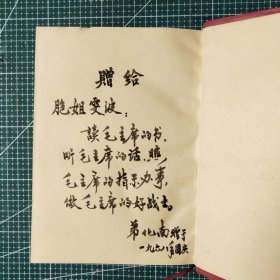 赠给
胞姐雯波：
读毛主席的书，
听毛主席的话，照
毛主席的指示办事，
做毛主席的好战士。
弟化南赠于
一九六八年国庆